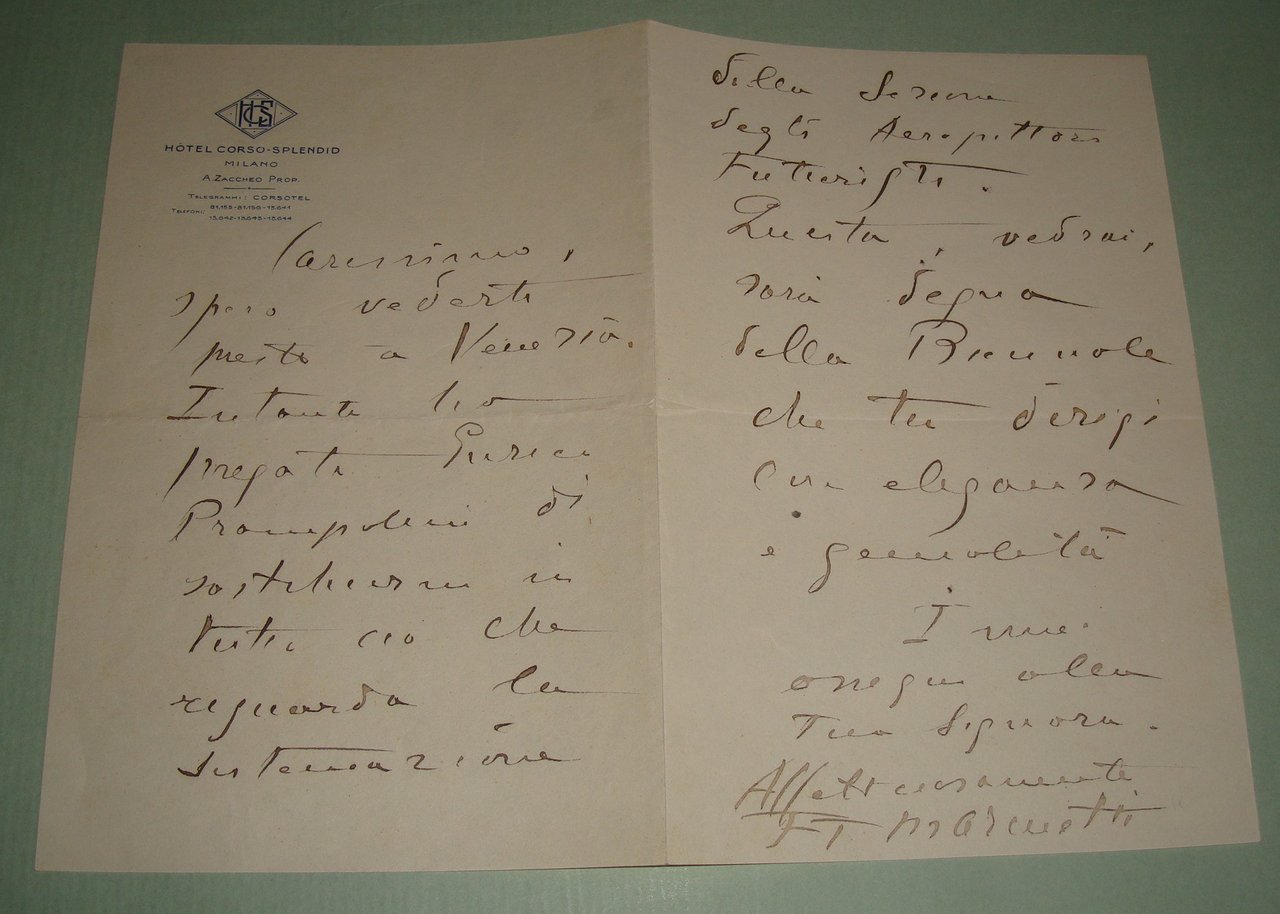 HCS
HÔTEL CORSO-SPLENDID
MILANO
A. ZACCHEO PROP.
TELEGRAMMI: CORSOTEL
TELEFONI: 81,155-81,156-13,641
13,642-13,643-13,644
Carissimo,
spero vederti
presto a Venezia.
Intanto ho
pregato Enrico
Prampolini di
sostituirmi in
tutto ciò che
riguarda la
sistemazione
della Sezione
degli Aeropittori
Futuristi.
Questa, vedrai,
sarà degna
della Biennale
che tu dirigi
con eleganza
e genialità
I miei
omaggi alla
Tua Signora.
Affettuosamente
FT Marinetti